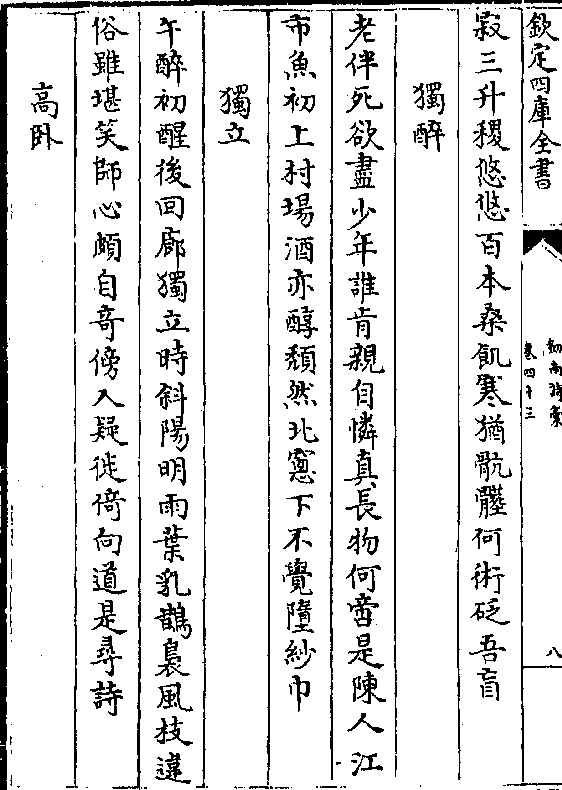 欽定四庫全書
劒南詩稾
卷四十三
八
寂三升稷悠悠百本桑飢寒猶骯髒何術砭吾肓
獨醉
老伴死欲盡少年誰肯親自憐真長物何啻是陳人江
市魚初上村場酒亦醇頽然北窻下不覺墮紗巾
獨立
午醉初醒後回廊獨立時斜陽明雨葉乳鵲裊風枝違
俗雖堪笑師心頗自竒傍人疑徙倚向道是尋詩
高卧